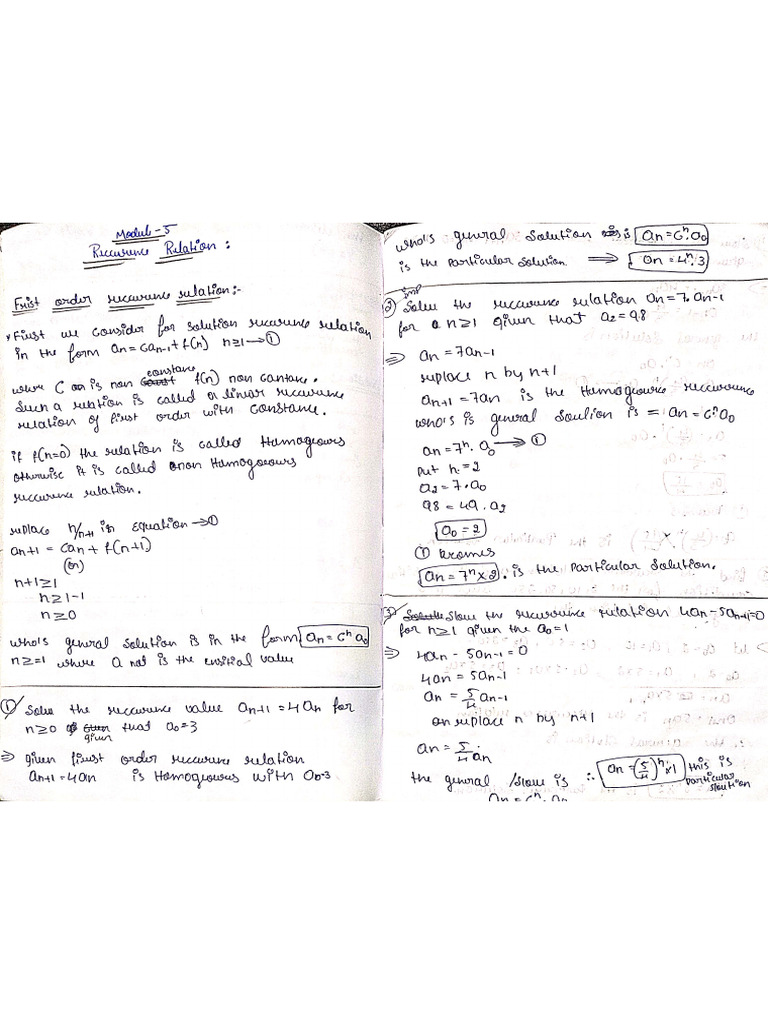 Module-5
Reccurence Relation:
Frist order reccurence relation:-
* First we consider for solution recurence relation
in the form an = can-1 + f(n) n≥1 → ①
where C an is non constance f(n) non contance.
Such a relation is called a linear reccurence
relation of first order with constance.
if f(n=0) the relation is called Homogeous
otherwise it is called anon Homogoeous
reccurence relation.
replace n/n+1 in equation → ①
an+1 = can + f(n+1)
(or)
n+1≥1
n≥1-1
n≥0
who's general solution is in the form an = cⁿ a0
n≥=1 where a not is the enitial value
① Solve the reccurence value an+1 = 4an for
n≥0 given that a0=3
⇒ given first order reccurence relation
an+1 = 4an is Homogeous with a0=3
who's general solution is an = cⁿ. a0
is the particular solution ⟹ an = 4ⁿ.3
Imp
② Solve the reccurence relation an = 7. an-1
for n≥1 given that a2 = 98
⇒ an = 7an-1
replace n by n+1
an+1 = 7an is the Homogeous reccurence
who's is general soulion is = an = cⁿ a0
an = 7ⁿ. a0 → ①
put n = 2
a2 = 7. a0
98 = 49. a2
a0 = 2
① bcomes
an = 7ⁿ x 2 . is the particular Solution.
③ Slove the recurrence relation 4an - 5an+1=0
for n≥1 given the a0=1
⇒ 4an - 5an-1 = 0
4an = 5an-1
an = 5/4 an-1
on replace n by n+1
an = 5/4 an
the general slove is ∴ an = (5/4)ⁿ x 1 this is
particular
sloution
an = cⁿ. a0